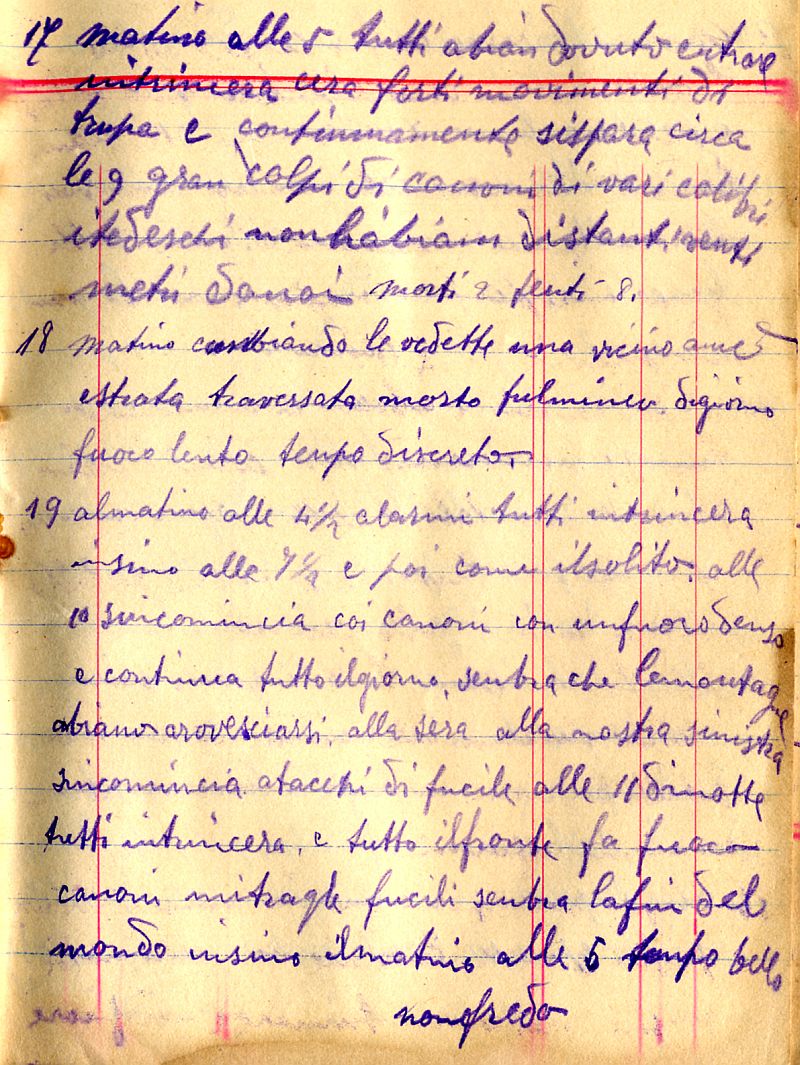 17 matino alle 5 tutti abian dovuto entrare
intrincera cera forti movimenti di
trupa e continuamente sispara circa
le 9 gran colpi di canoni di vari calibri
itedeschi non habiam distanti venti
metri danoi morti 2 feriti 8.
18 matino cambiando le vedette una vicino ame
estrata traversata morto fulmineo. digiorno
fuoco lento tempo discreto.
19 almatino alle 4½ alarmi tutti intrincera
insino alle 7½ e poi come ilsolito. alle
10 sincomincia coi canoni con unfuoco denso
e continua tutto ilgiorno. senbra che lemontagne
abiano arovesciarsi. alla sera alla nostra sinistra
sincomincia atacchi di fucile alle 11 dinotte
tutti intrincera. e tutto ilfronte fa fuoco
canoni mitragle fucili senbra lafin del
mondo insino ilmatino alle 5 tenpo bello
nonfredo